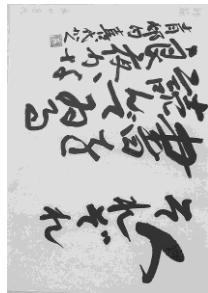 人
それぞれ
書を
読んでゐる
良夜かな
青邨句